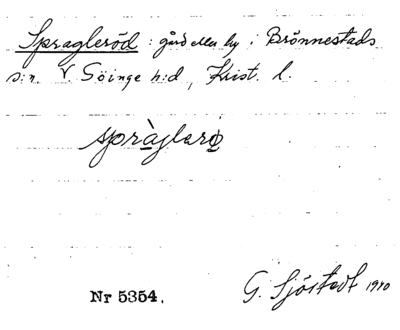 Spragleröd : gård eller by i Brönnestads
s:n. V Göinge h:d, Krist. l.
spràglarø
Nr 5354.
G. Sjöstedt 1910